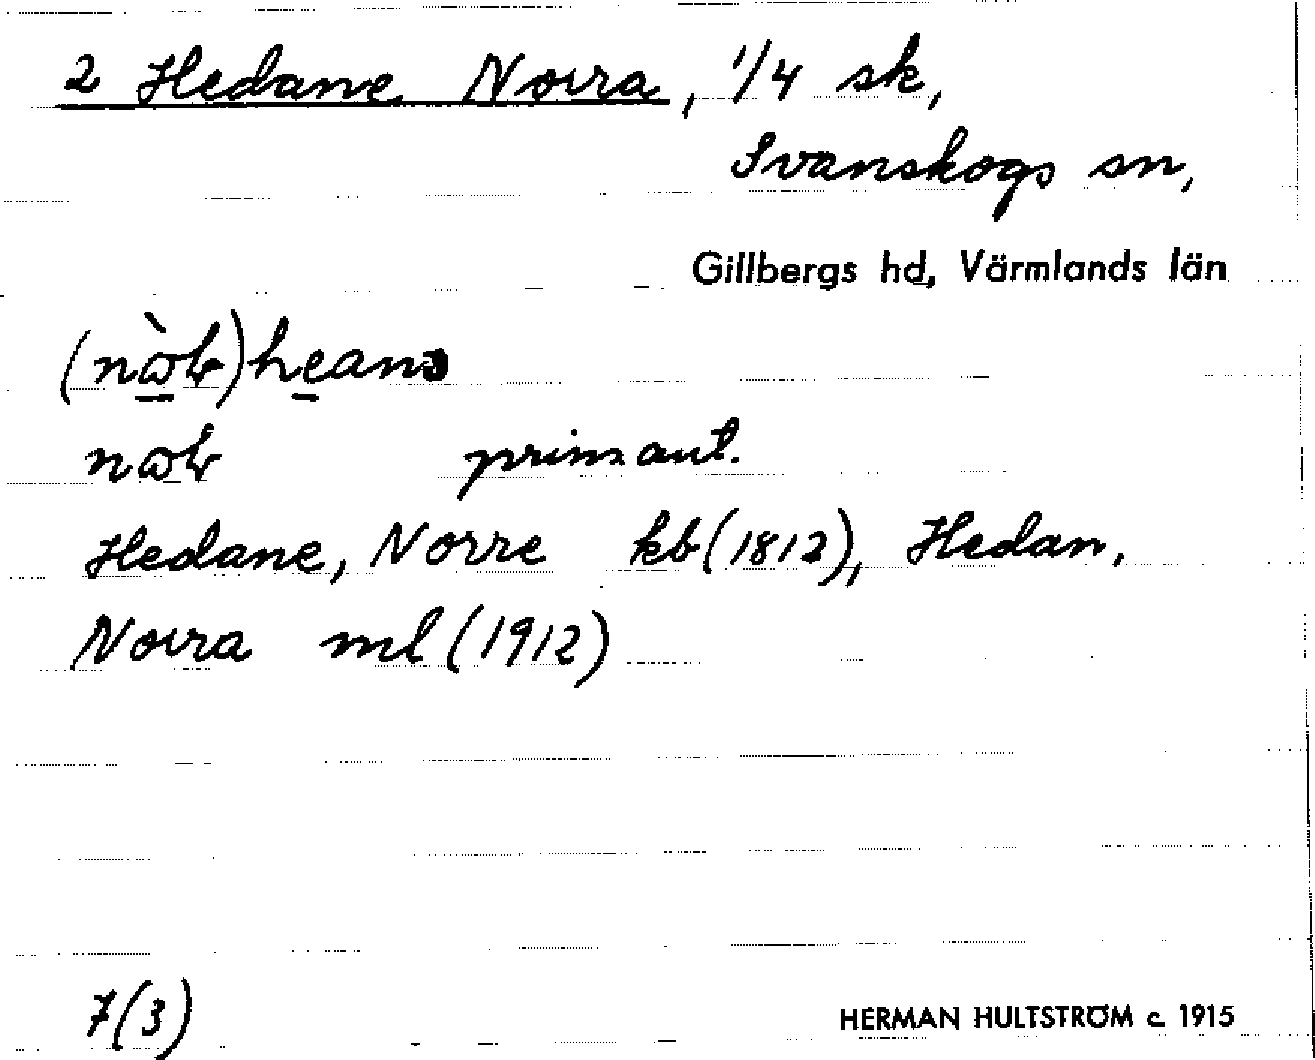 2 Hedane, Norra, 1/4 sk,
Svanskogs sn,
Gillbergs hd, Värmlands län
primaut.
Hedane, Norre kb (1812), Hedan,
Norra ml (1912)
7(3)
HERMAN HULTSTRÖM c. 1915